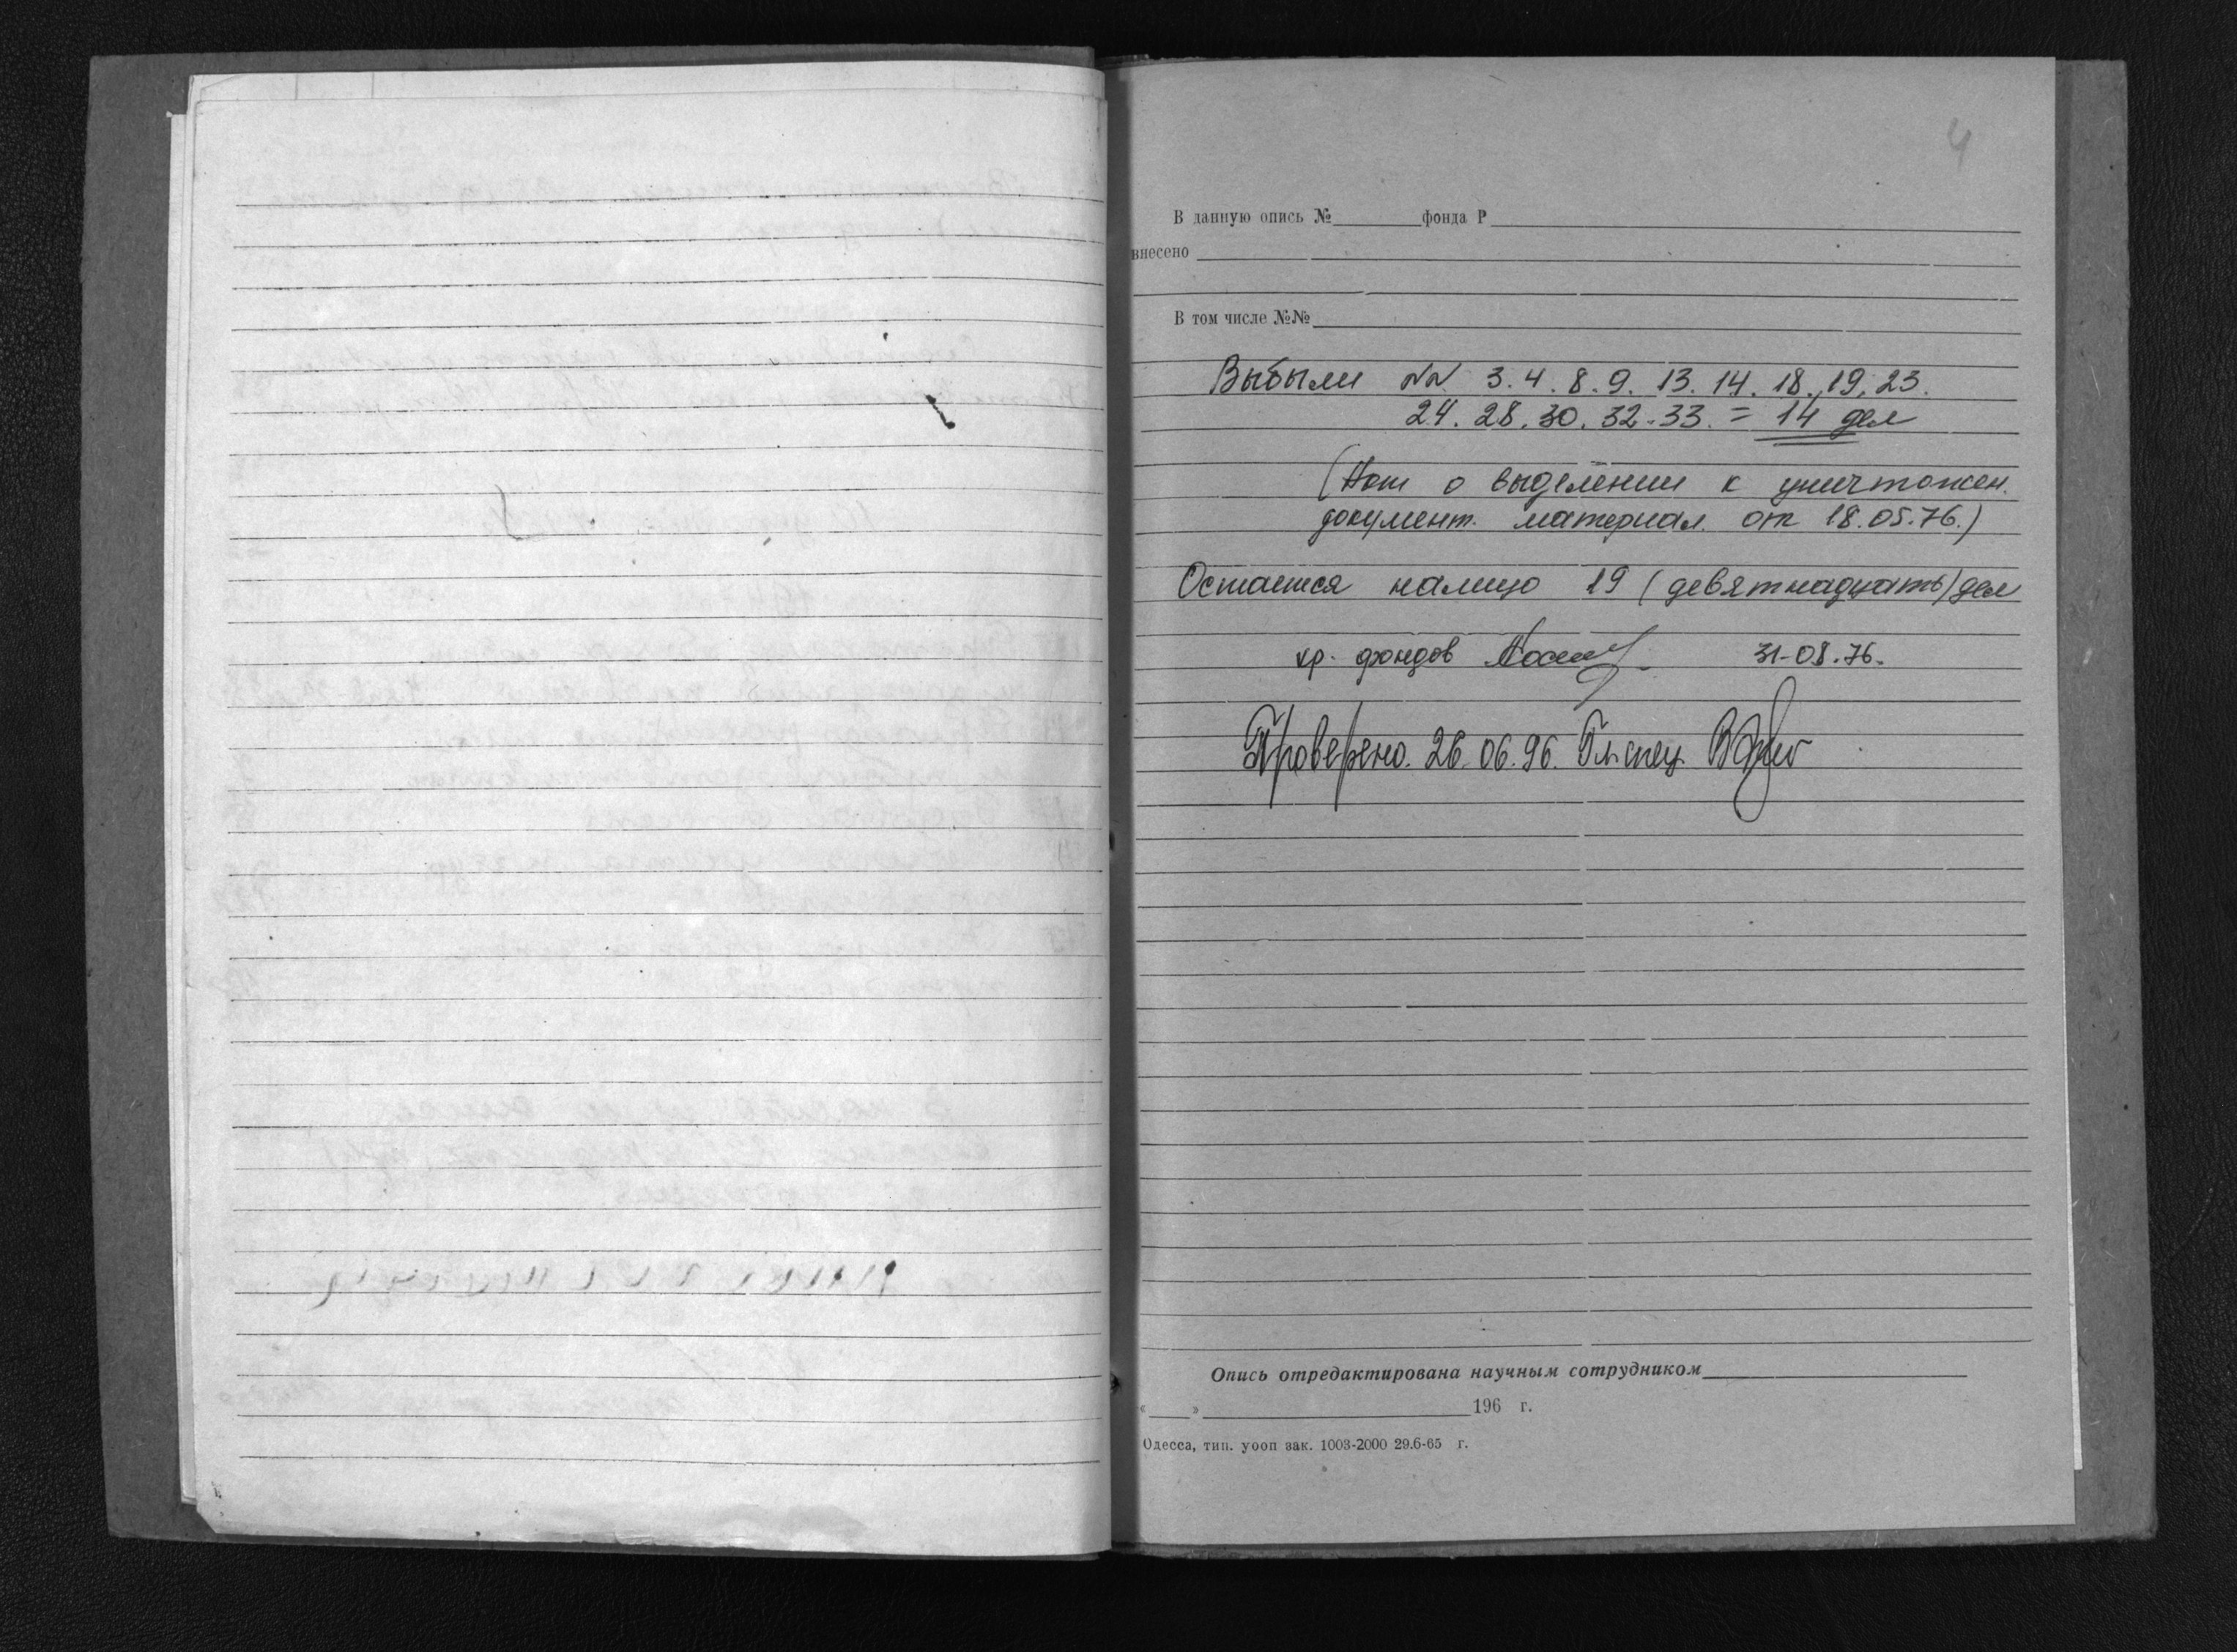 4
В данную опись № фонда Р
внесено
В том числе №№
Выбыли NN 3. 4. 8. 9. 13. 14. 18., 19, 23.
24. 28. 30. 32. 33. = 14 дел
(Акт о выделении к уничтожен.
документ. материал. от 18.05.76.)
Остается налицо 19 (девятнадцать) дел
хр. фондов 31-08.76.
Проверено. 26.06.96. Гл. спец.
Опись отредактирована научным сотрудником
« » 196 г.
Одесса, тип. уооп зак. 1003-2000 29.6-65 г.